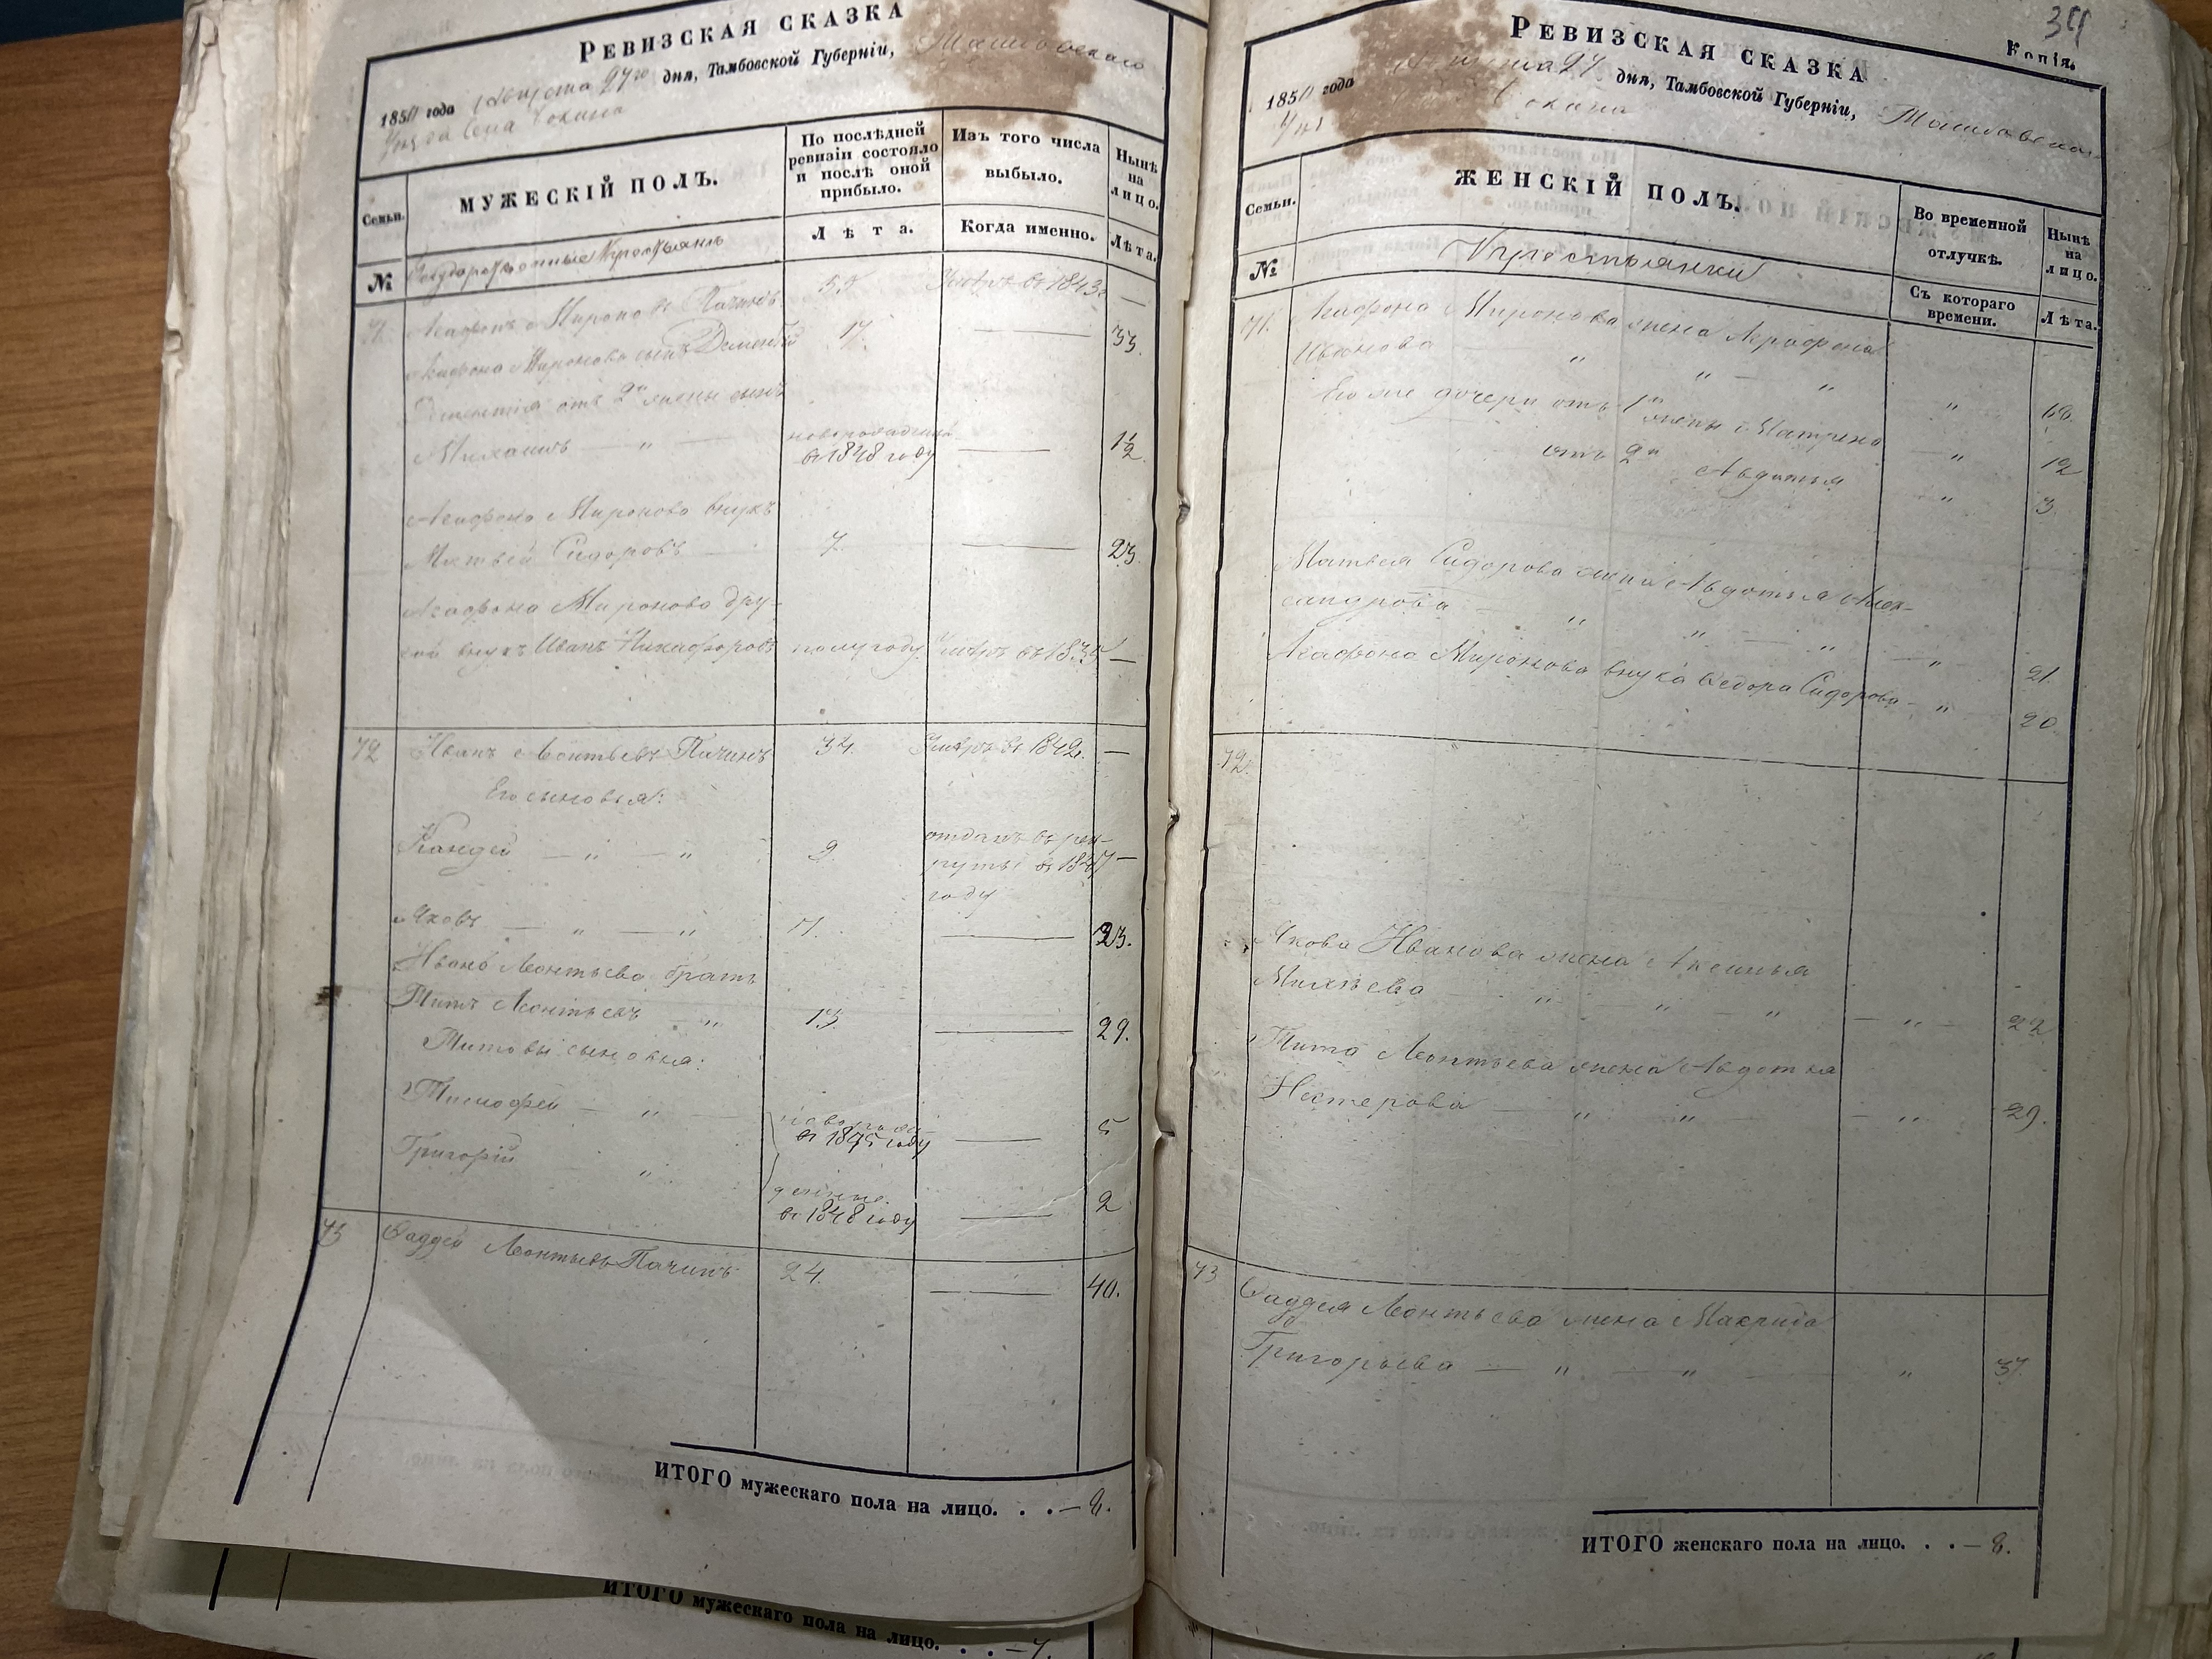 Ревизская сказка
1850 года Августа 27го дня, Тамбовской Губерніи,
Уезда Села
Семьи.
МУЖЕСКІЙ ПОЛЪ.
По послѣдней ревизіи состояло и послѣ оной прибыло.
Изъ того числа выбыло.
Нынѣ на лицо.
Лѣта.
Когда именно.
Лѣта.
№
Государственные Крестьяне
71. Агафонъ Мироновъ Пачинъ 55 Умеръ въ 1843 —
Агафона Миронова сынъ Дементій 17. — 33.
Дементія отъ 2й жены сынъ
Михаилъ — " — новорожденный въ 1848 году — 1½
Агафона Миронова внукъ
Матвей Сидоровъ — 7. — 23.
Агафона Миронова дру-
гой внукъ Иванъ Никафоровъ полугоду. Умеръ въ 1835 —
72 Иванъ Леонтьевъ Пачинъ 34. Умеръ въ 1842. —
Его сыновья:
— " — " 9 отданъ въ рек-
руты въ 1847 —
году
Яковъ — " — " — 23.
Ивана Леонтьева братъ
Титъ Леонтьевъ — " 13. — 29.
Титовы сыновья:
Тимофей — " новорож- въ 1845 году — 5
Григорій " денные. въ 1848 году — 2
73 Фаддей Леонтьевъ Пачинъ 24. — 40.
ИТОГО мужескаго пола на лицо. . . — 8.
ИТОГО мужескаго пола на лицо. . . — 7.
39
Копія.
Ревизская сказка
1850 года 27 дня, Тамбовской Губерніи,
Семьи.
ЖЕНСКІЙ ПОЛЪ.
Во временной отлучкѣ.
Нынѣ на лицо.
№
Крестьянки
Съ котораго времени.
Лѣта.
71. Агафона Миронова жена Аграфена
Иванова " " — " " 68.
Его же дочери отъ 1й жены Матрена " 12
отъ 2й Авдотья " 3
Матвея Сидорова жена Авдотья Алек-
сандрова — " " — " — " 21.
Агафона Миронова внука Федора Сидорова — " 20.
72.
Якова Иванова жена Аксинья
Михѣева — " — " — " — " — 22
Тита Леонтьева жена Авдотья
Нестерова — " — " — — " 29.
73 Фаддея Леонтьева жена Макрида
Григорьева — " — " — " 37.
ИТОГО женскаго пола на лицо. . . — 8.